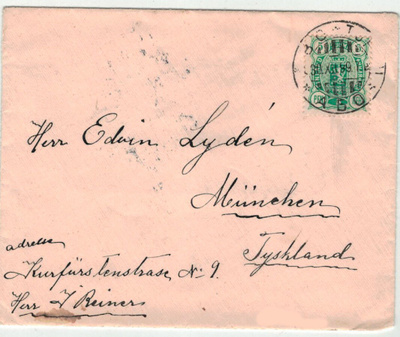 ABO
Herr Edvin Lydén
München
Tyskland
adresse
Kurfürstenstrase, No 9.
Herr J Reiners